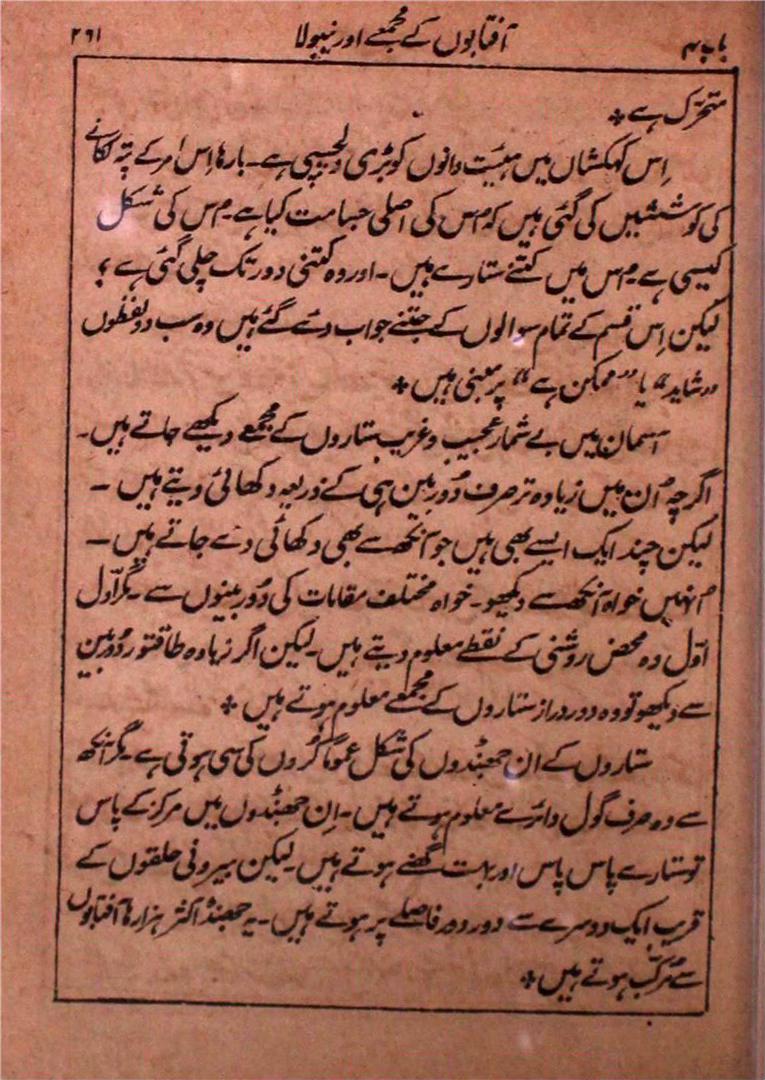 باب ۴ آفتابوں کے مجمعے اور نیبولا ۲۶۱
متحرک ہے *
اِس کہکشاں میں ہیئت دانوں کو بڑی دلچسپی ہے۔ بارہا اِس امر کے پتہ لگانے
کی کوششیں کی گئی ہیں کہ اُس کی اصلی جسامت کیا ہے۔ اُس کی شکل
کیسی ہے۔ اُس میں کتنے ستارے ہیں۔ اور وہ کتنی دور تک چلی گئی ہے؟
لیکن اِس قسم کے تمام سوالوں کے جتنے جواب دئے گئے ہیں وہ سب دو لفظوں
”شاید“ یا ”ممکن ہے“ پر مبنی ہیں *
آسمان میں بے شمار عجیب و غریب ستاروں کے مجمعے دیکھے جاتے ہیں۔
اگرچہ اُن میں زیادہ تر صرف دُوربین ہی کے ذریعہ دکھائی دیتے ہیں ۔
لیکن چند ایک ایسے بھی ہیں جو آنکھ سے بھی دکھائی دے جاتے ہیں۔
اُنہیں خواہ آنکھ سے دیکھو۔ خواہ مختلف مقامات کی دُوربینوں سے۔ مگر اوّل
اوّل وہ محض روشنی کے نقطے معلوم دیتے ہیں۔ لیکن اگر زیادہ طاقتور دُوربین
سے دیکھو تو وہ دور دراز ستاروں کے مجمعے معلوم ہوتے ہیں *
ستاروں کے ان جھنڈوں کی شکل عموماً کُروں کی سی ہوتی ہے۔ مگر آنکھ
سے وہ صرف گول دائرے معلوم ہوتے ہیں۔ اِن جھنڈوں میں مرکز کے پاس
تو ستارے پاس پاس اور بہت گھنے ہوتے ہیں۔ لیکن بیرونی حلقوں کے
قریب ایک دوسرے سے دور دور فاصلے پر ہوتے ہیں۔ یہ جھنڈ اکثر ہزارہا آفتابوں
سے مُرکّب ہوتے ہیں *